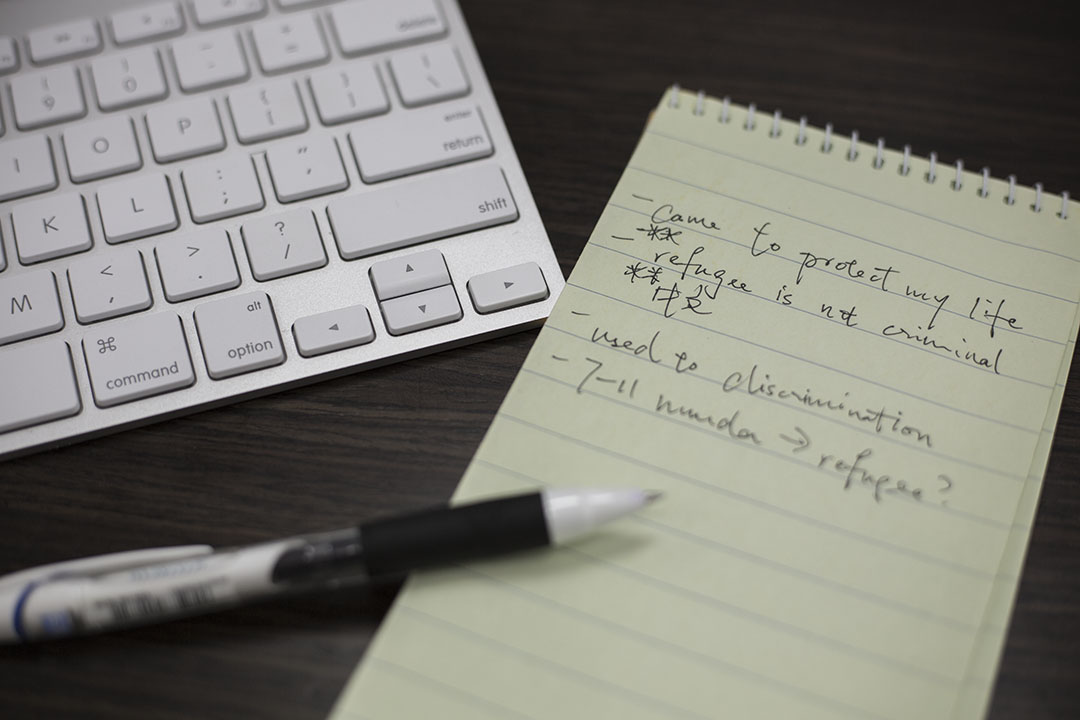 delete
( 9
) 0
_ -
+ =
I O P { [ } ] | \
enter
return
K L : ; " '
shift
M < , > . ? /
⌘
command
alt
option
- Came to protect my life
**
- refugee is not criminal
**
- used to discrimination
- 7-11 murder → refugee?